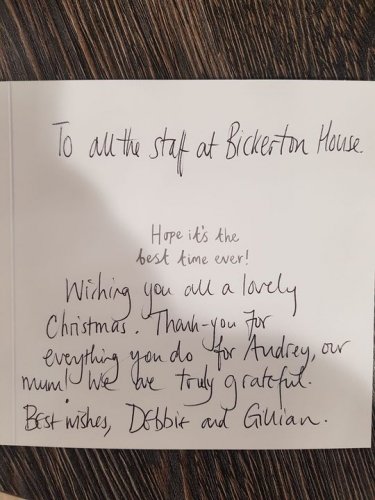 To all the staff at Bickerton House.
Hope it's the
best time ever!
Wishing you all a lovely
Christmas. Thank-you for
everything you do for Audrey, our
mum! We are truly grateful.
Best wishes, Debbie and Gillian.